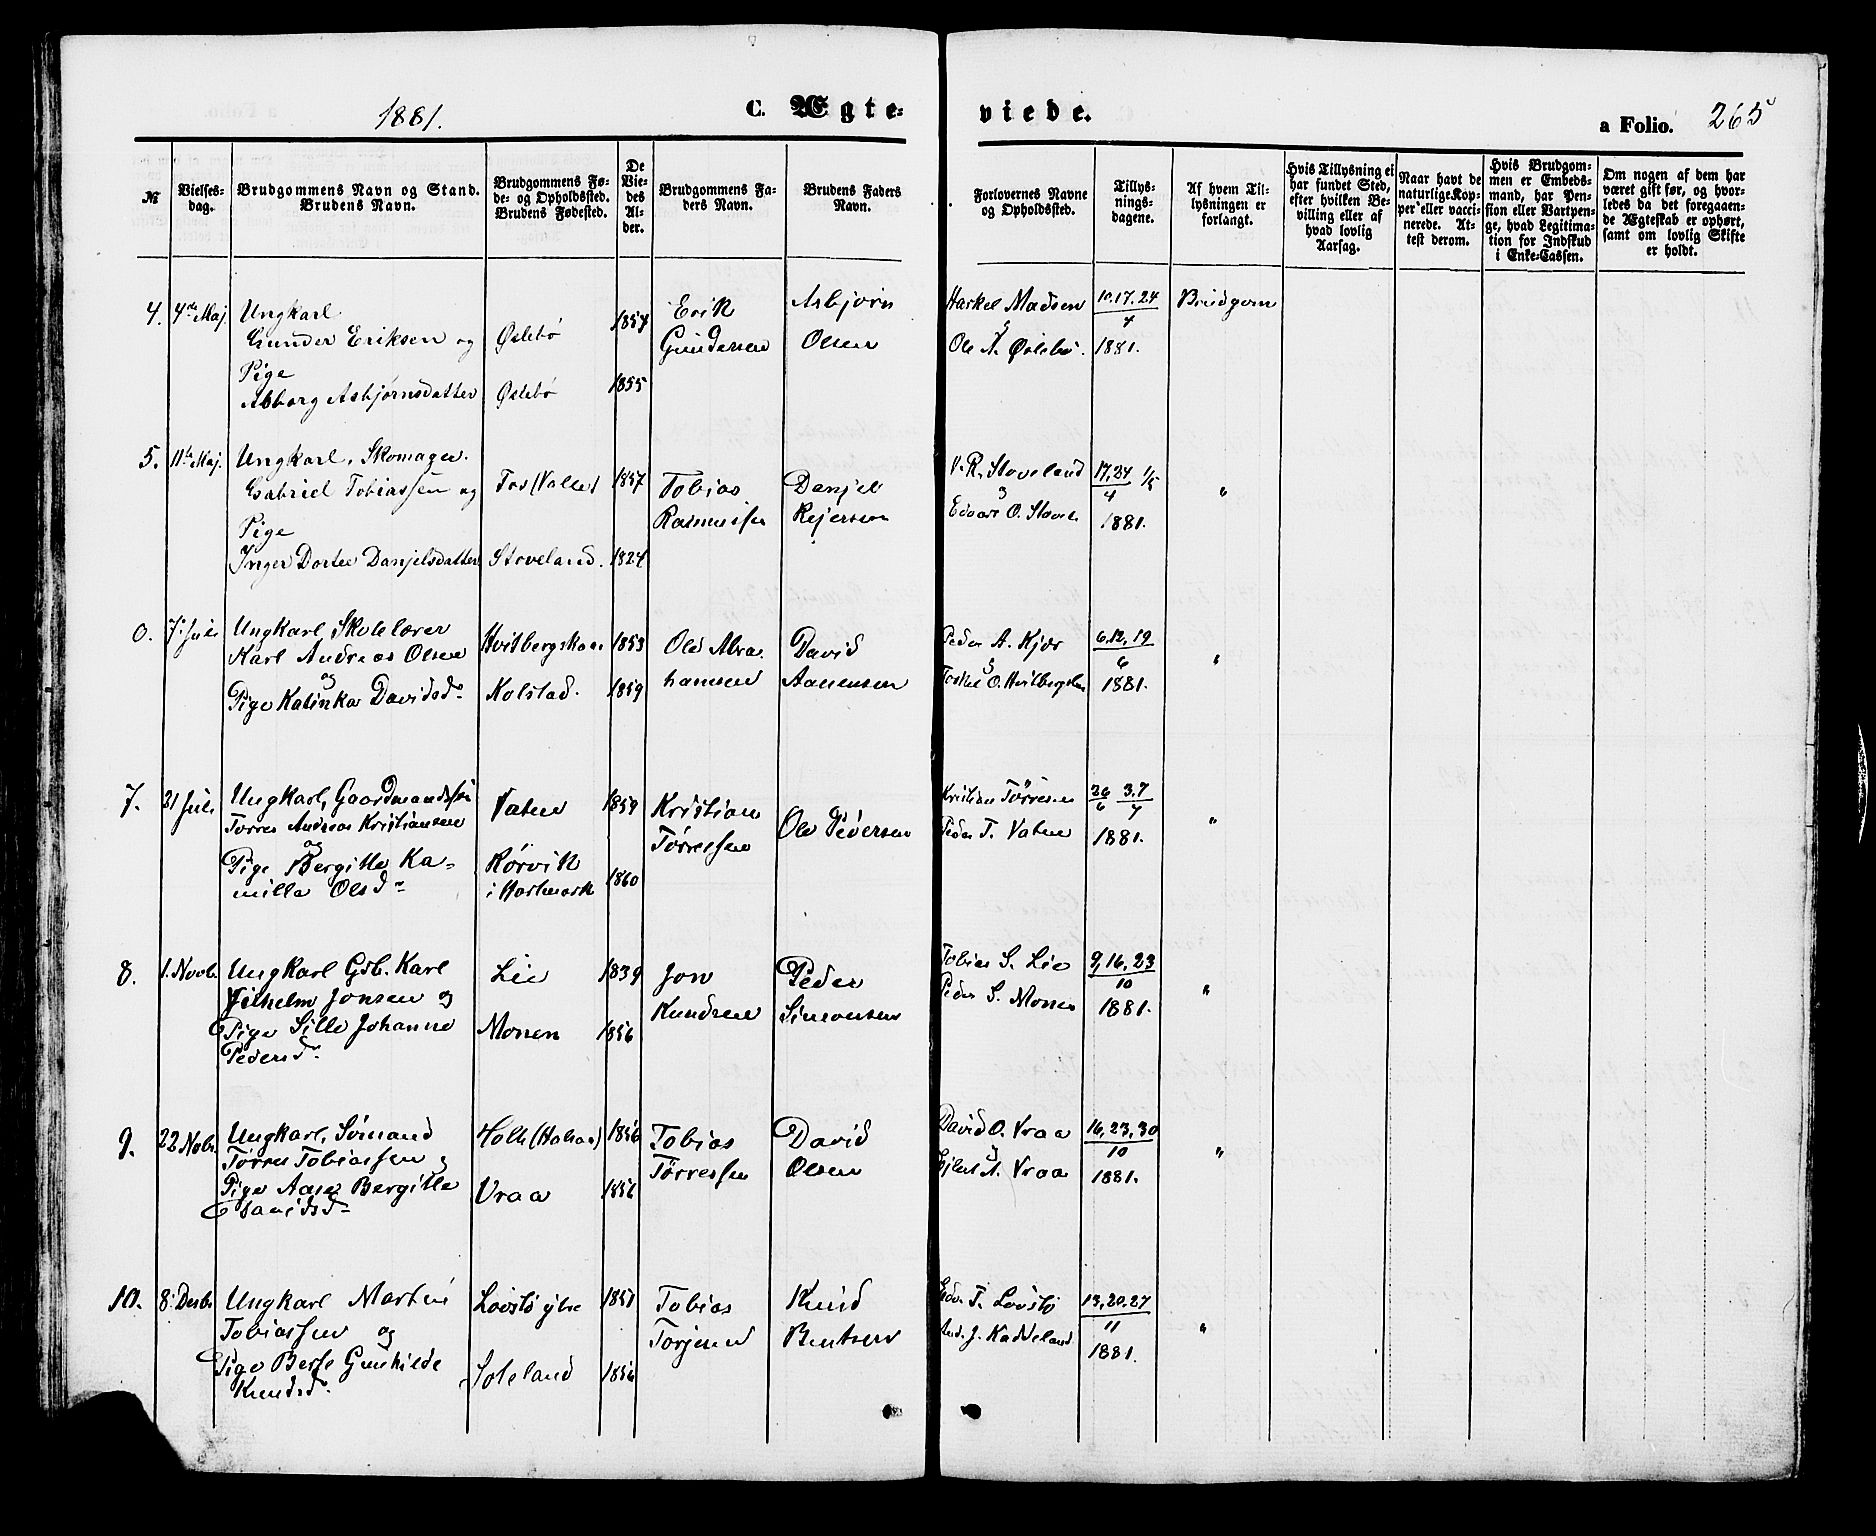 1881.
C. Ægte-
viede.
a Folio. 265
№
Vielses-
dag.
Brudgommens Navn og Stand.
Brudens Navn.
Brudgommens Fø-
de- og Opholdssted.
Brudens Fødested.
De
Vie-
des
Al-
der.
Brudgommens Fa-
ders Navn.
Brudens Faders
Navn.
Forlovernes Navne
og Opholdssted.
Tillys-
nings-
dagene.
Af hvem Til-
lysningen er
forlangt.
Hvis Tillysning ei
har fundet Sted,
efter hvilken Be-
villing eller af
hvad lovlig
Aarsag.
Naar havt de
naturlige Kop-
per eller vacci-
nerede. At-
test derom.
Hvis Brudgom-
men er Embeds-
mand, har Pen-
sion eller Vartpen-
ge, hvad Legitima-
tion for Indskud
i Enke-Cassen.
Om nogen af dem har
været gift før, og hvor-
ledes da det foregaaen-
de Ægteskab er ophørt,
samt om lovlig Skifte
er holdt.
4. 4de Maj.
Ungkarl
Gunder Eriksen og
Pige
Asborg Asbjørnsdatter
Øslebø
Øslebø
1857
1855
Erik
Gundersen
Asbjørn
Olsen
Haskel Madsen
&
Ole A. Øslebø.
10.17.24
4
1881.
Brudgom
5. 11te Maj.
Ungkarl, Skomager.
Gabriel Tobiassen og
Pige
Inger Dortee Danjelsdatter
Fos (Valle)
Stoveland.
1857
1824
Tobias
Rasmussen
Danjel
Rejersen
V. R. Stoveland
&
Edvart O. Stovel.
17,24 1/5
4
1881.
"
6. 7. Juli
Ungkarl, Skolelærer
Karl Andreas Olsen
og
Pige Katinka Davidsd.
Hvitbergskaar
Kolstad.
1853
1859
Ole Abra-
hamsen
David
Aanensen
Peder A. Kjær
&
Toskel O. Hvitbergskar
6,12,19
6
1881.
"
7. 21 Juli
Ungkarl, Gaardmandssøn
Torres Andreas Kristiansen
og
Pige Bergitte Ka-
milla Olsd.
Vatne
Rørvik
i Harkmark
1859
1860
Kristian
Tørressen
Ole Pedersen
Kristian Tørresen
Peder T. Vatne
26 3.7
6 7
1881.
"
8. 1. Novb.
Ungkarl Gdb. Karl
Vilhelm Jonsen og
Pige Sille Johanne
Pedersd.
Lie
Monen
1839
1856
Jon
Knudsen
Peder
Simonsen
Tobias S. Lie
Peder S. Monen
9,16,23
10
1881.
"
9. 22 Nobr.
Ungkarl, Sømand
Tørres Tobiassen og
Pige Aase Bergitte
Davidsd.
Holle (Halsaa)
Vraa
1856
1856
Tobias
Tørressen
David
Olsen
David O. Vraa
&
Eilert A. Vraa
16,23,30
10
1881.
"
10. 8. Desbr.
Ungkarl Martin
Tobiassen og
Pige Berte Gunhilde
Knudsd.
Lovslø ytre
Søteland
1851
1856
Tobias
Torjesen
Knud
Bentsen
Edv. T. Lovslø
And. J. Kaddeland
13,20,27
11
1881.
"